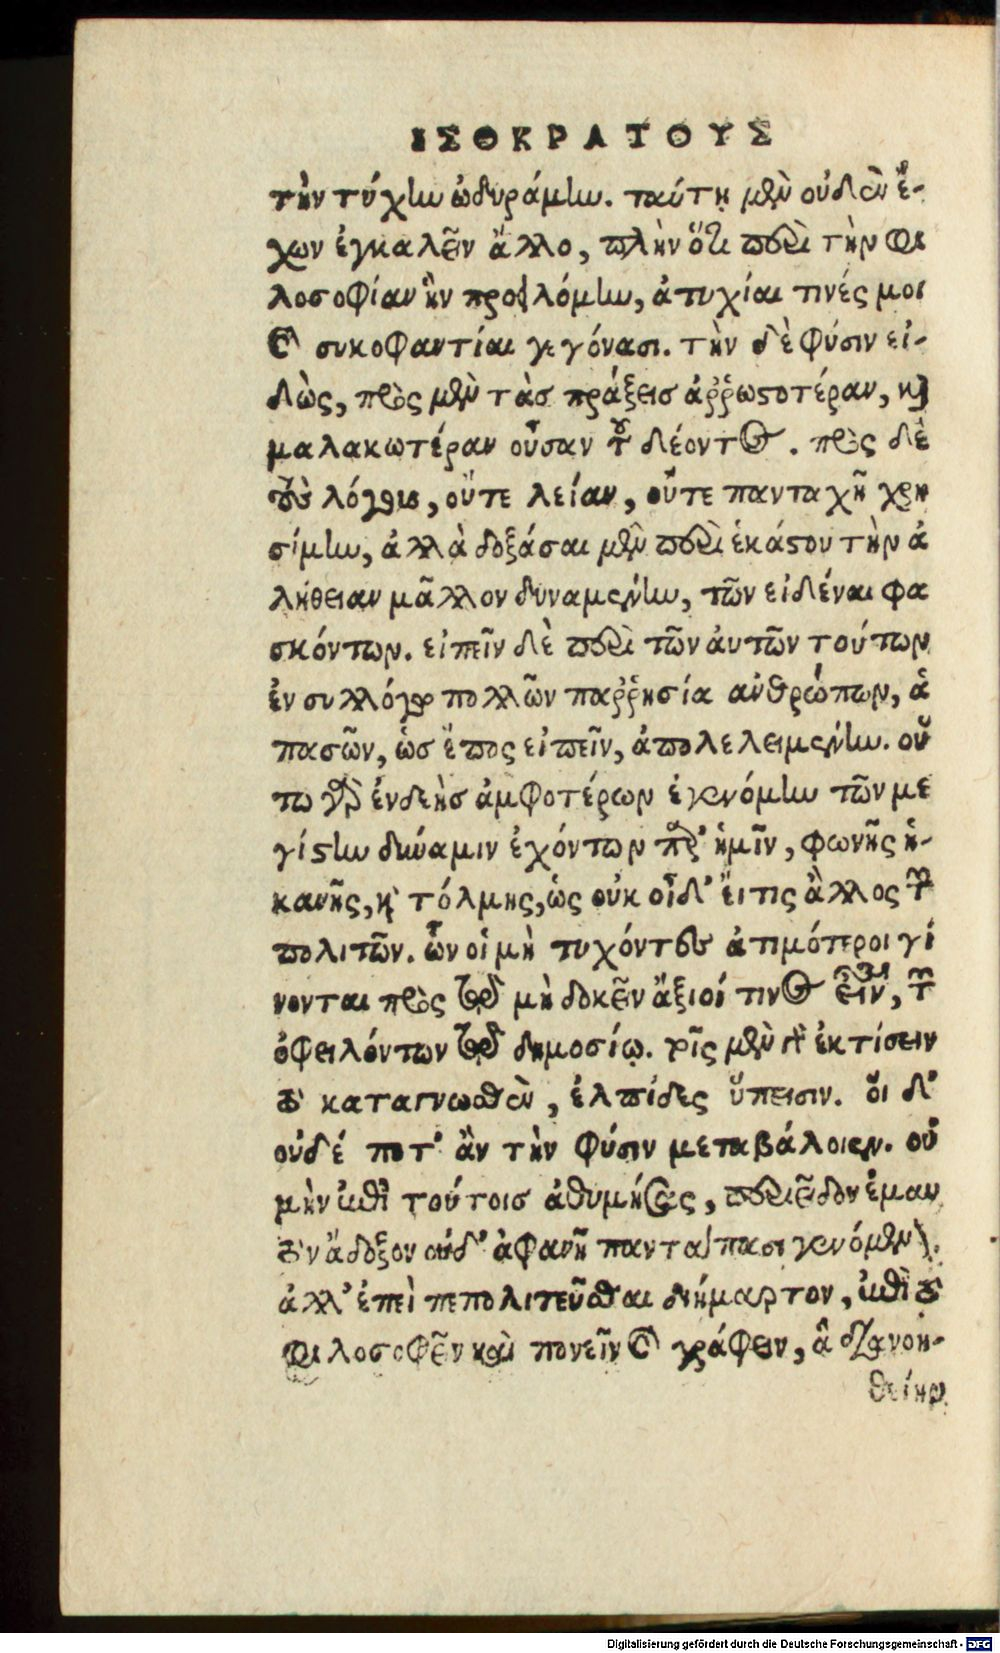 ΙΣΟΚΡΑΤΟΥΣ
τὴν τύχην ὠδυράμην. ταύτῃ μὲν οὐδὲν ἔ-
χων ἐγκαλεῖν ἄλλο, πλὴν ὅτι περὶ τὴν φι
λοσοφίαν ἣν προειλόμην, ἀτυχίαι τινές μοι
καὶ συκοφαντίαι γεγόνασι. τὴν δὲ φύσιν εἰ-
δὼς, πρὸς μὲν τὰς πράξεις ἀῤῥωστοτέραν, καὶ
μαλακωτέραν οὖσαν τοῦ δέοντος. πρὸς δὲ
τοὺς λόγους, οὔτε λείαν, οὔτε πανταχῆ χρη
σίμην, ἀλλὰ δοξάσαι μὲν περὶ ἑκάστου τὴν ἀ
λήθειαν μᾶλλον δυναμένην, τῶν εἰδέναι φα
σκόντων. εἰπεῖν δὲ περὶ τῶν αὐτῶν τούτων
ἐν συλλόγῳ πολλῶν παῤῥησία ἀνθρώπων, ἁ
πασῶν, ὡς ἔπος εἰπεῖν, ἀπολελειμένην. οὕ
τω γὰρ ἐνδεὴς ἀμφοτέρων ἐγενόμην τῶν με
γίστην δύναμιν ἐχόντων παρ' ἡμῖν, φωνῆς ἱ-
κανῆς, καὶ τόλμης, ὡς οὐκ οἶδ' εἴ τις ἄλλος τῶν
πολιτῶν. ὧν οἱ μὴ τυχόντες ἀτιμότεροι γί
νονται πρὸς τὸ μὴ δοκεῖν ἄξιοί τινος εἶναι, τῶν
ὀφειλόντων τῷ δημοσίῳ. τοῖς μὲν γὰρ ἐκτίσειν
τὸ καταγνωσθὲν, ἐλπίδες ὕπεισιν. οἳ δ'
οὐδέ ποτ' ἂν τὴν φύσιν μεταβάλοιεν. οὐ
μὴν ἐπὶ τούτοις ἀθυμήσας, περιεῖδον ἐμαυ
τὸν ἄδοξον οὐδ' ἀφανῆ παντάπασι γενόμενον.
ἀλλ' ἐπεὶ πεπολιτεῦσθαι διήμαρτον, ἐπὶ τὸ
φιλοσοφεῖν καὶ πονεῖν καὶ γράφειν, ἃ διανοη-
θείην
Digitalisierung gefördert durch die Deutsche Forschungsgemeinschaft - DFG